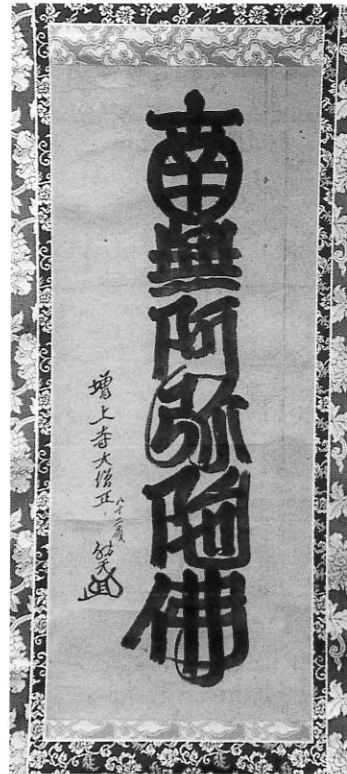 南無阿弥陀佛
増上寺大僧正
八十二歳
祐天